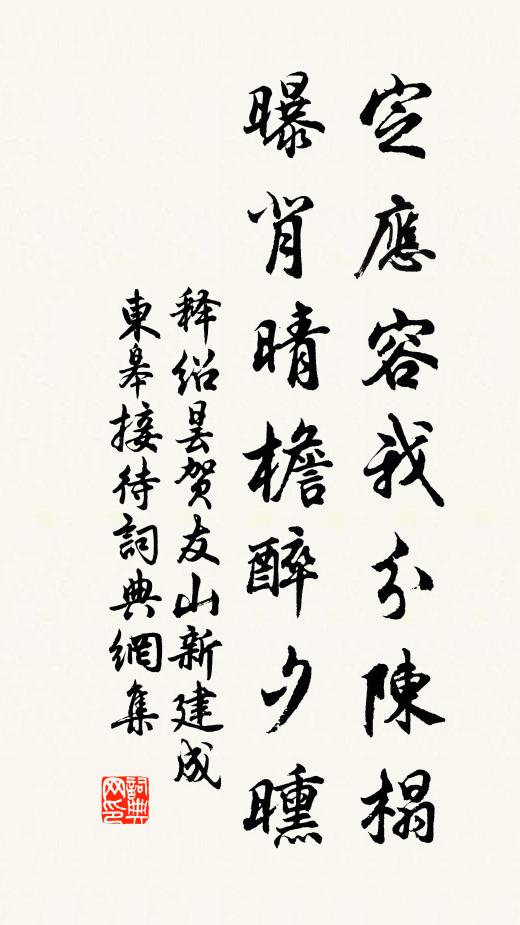 定應容我分陳榻
曝背晴檐醉夕曛
释绍昙贺友山新建成
東皋接待詞典網集
詞典網印